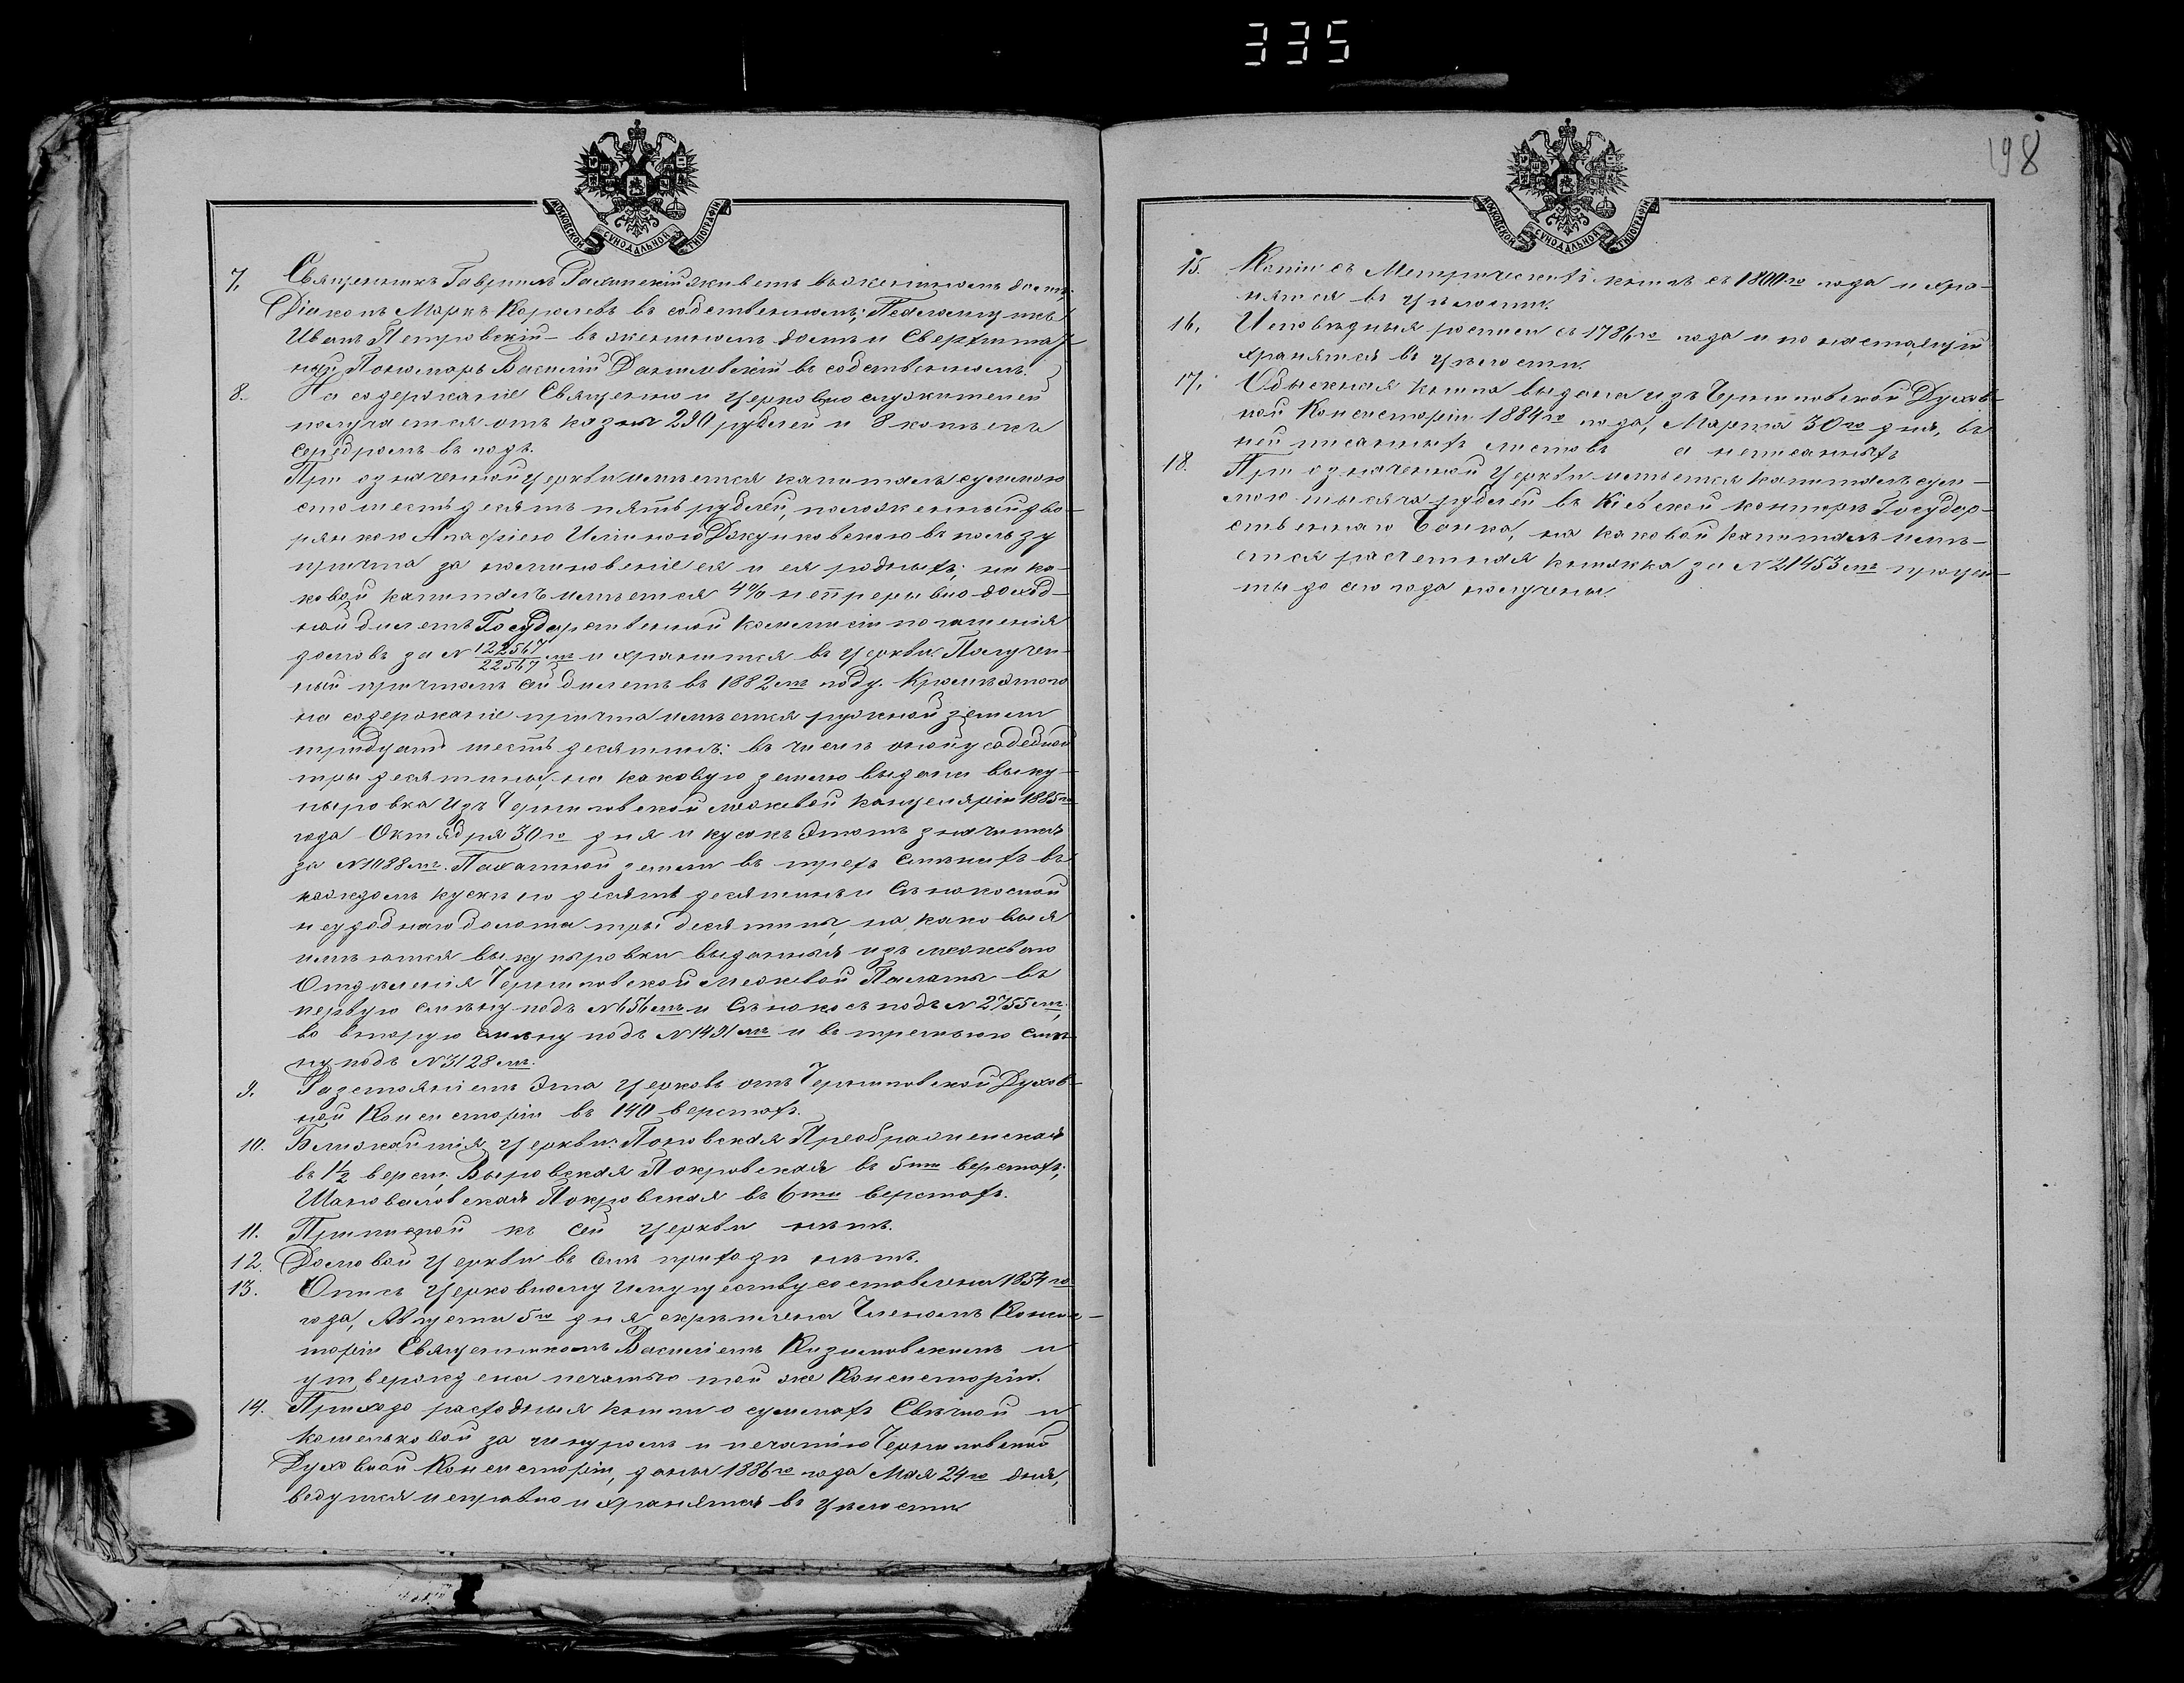 335
198
МОСКОВСКОЙ СѴНОДАЛЬНОЙ ТИПОГРАФІИ
7, Священникъ Гавріилъ живетъ въ женинномъ домѣ;
Діаконъ Маркъ Королевъ въ собственномъ; Псаломщикъ
Иванъ Петровскій – въ женинномъ домѣ и Сверхштат
ный Пономарь Василій Данилевскій въ собственномъ.
8. На содержаніе Священно и церковно служителей
получается отъ казны 290 рублей и 8 копѣекъ
серебромъ въ годъ.
При означенной церкви имѣется капиталъ суммою
сто шестьдесятъ пять рублей, положенный дво-
рянкою Агафіею Джунковскою въ пользу
причта за поминовеніе ея и ея родныхъ; на ка-
ковой капиталъ имѣется 4% непрерывно доход-
ной билетъ Государственной Коммисіи погашенія
долговъ за N 122567/22567 мъ и хранится въ церкви. Получен-
ный причтомъ сей билетъ въ 1882мъ году. Кромѣ этого
на содержаніе причта имѣется ружной земли
тридцать шесть десятинъ: въ числѣ оной усадебной
три десятины, на каковую землю выдана выко-
пыровка изъ Черниговской межевой канцеляріи 1885го
года Октября 30го дня и кусокъ этотъ значится
за N 1088мъ. Пахатной земли въ трехъ смѣнахъ въ
каждомъ кускѣ по десять десятинъ и Сѣнокосной
неудобнаго болота три десятины, на каковыя
имѣются выкопыровки выданныя изъ межеваго
Отдѣленія Черниговской Межевой Палаты въ
первую смѣну подъ N 656мъ и Сѣнокосъ подъ N 2755мъ,
во вторую смѣну подъ N 1491мъ и въ третьюю смѣ-
ну подъ N 3128мъ.
9. Разстояніемъ эта церковь отъ Черниговской Духов-
ной Консисторіи въ 140 верстахъ.
10. Ближайшія церкви: Поповская Преображенская
въ 1½ верст, Вировская Покровская въ 5ти верстахъ;
Шаповаловская Покровская въ 6ти верстахъ.
11. Приписной къ сей церкви нѣтъ.
12. Домовой церкви въ семъ приходѣ нѣтъ.
13. Опись церковному имуществу составлена 1854го
года, Августа 5го дня скрѣплена Членомъ Консис-
торіи Священникомъ Василіемъ и
утверждена печатью той же Консисторіи.
14. Приходо расходныя книги о суммахъ Свѣчной и
кошельковой за шнуромъ и печатію Черниговской
Духовной Консисторіи, даны 1886го года Мая 24го дня,
ведутся исправно и хранятся въ цѣлости
15. Копіи съ Метрическихъ книгъ съ 1800го года и хра-
нятся въ цѣлости.
16, Исповѣдныя росписи съ 1786го года и по настоящій
хранятся въ цѣлости.
17, Обыскная книга выдана изъ Черниговской Духов-
ной Консисторіи 1884го года, Марта 30го дня, въ
ней писанныхъ листовъ а неписанныхъ
18. При означенной церкви имѣется капиталъ сум-
мою тысяча рублей въ Кіевской конторѣ Государ-
ственнаго Банка, на каковой капиталъ имѣ-
ется расчетная книжка за N 21453мъ процен-
ты до сего года получены.
МОСКОВСКОЙ СѴНОДАЛЬНОЙ ТИПОГРАФІИ